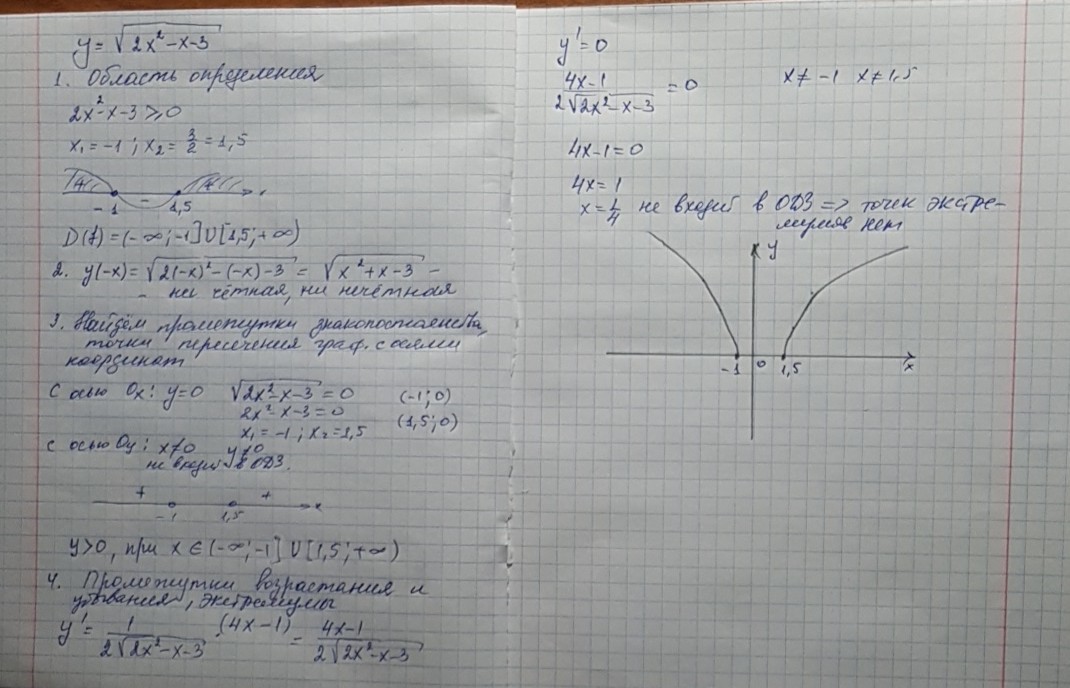 y = √(2x²-x-3)
1. Область определения
2x²-x-3 ⩾ 0
x₁ = -1 ; x₂ = 3/2 = 1,5
+ - + x
-1 1,5
D(f) = (-∞; -1] U [1,5; +∞)
2. y(-x) = √(2(-x)²-(-x)-3) = √(x²+x-3) -
- ни чётная, ни нечётная
3. Найдём промежутки знакопостоянства,
точки пересечения граф. с осями
координат
С осью Ox: y=0 √(2x²-x-3) = 0 (-1; 0)
2x²-x-3=0 (1,5; 0)
x₁ = -1 ; x₂ = 1,5
с осью Oy: x≠0 y≠0
не входит в ОДЗ.
+ + x
-1 1,5
y>0, при x ∈ (-∞; -1] U [1,5; +∞)
4. Промежутки возрастания и
убывания, экстремумы
y' = 1/(2√(2x²-x-3)) · (4x-1) = (4x-1)/(2√(2x²-x-3))
y' = 0
(4x-1)/(2√(2x²-x-3)) = 0 x ≠ -1 x ≠ 1,5
4x-1=0
4x = 1
x = 1/4 не входит в ОДЗ => точек экстре-
мумов нет
y
-1 0 1,5 x